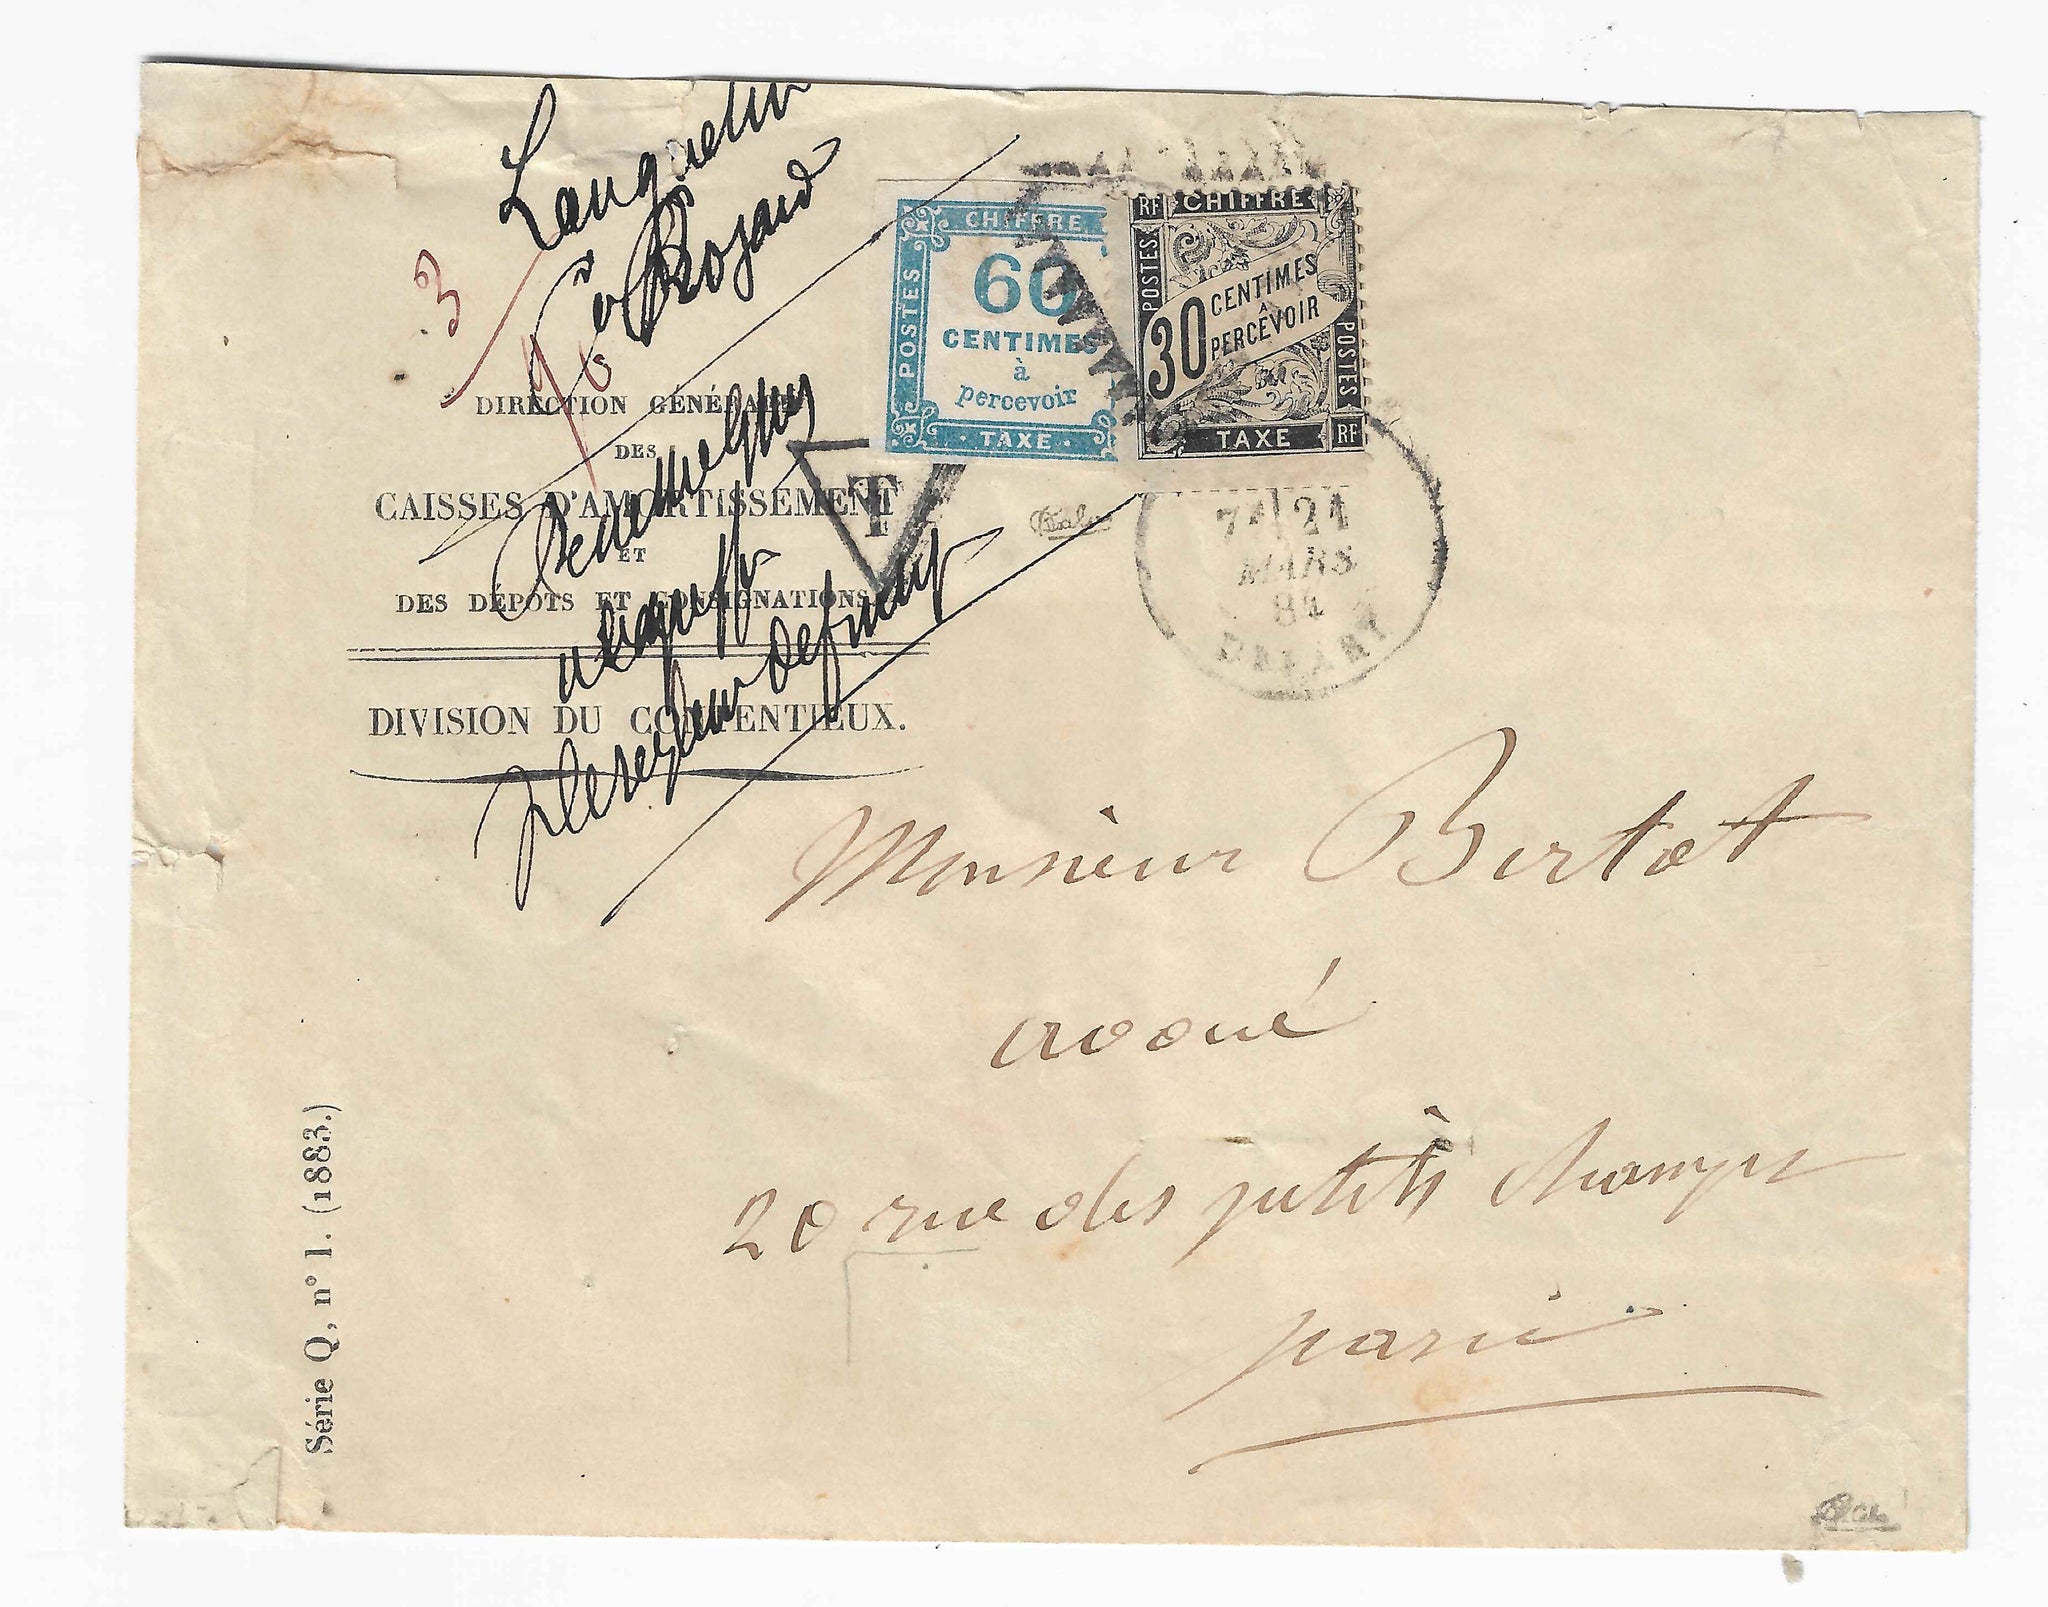 Languelin
Rozard
3
90
DIRECTION GÉNÉRALE
DES
CAISSES D'AMORTISSEMENT
ET
DES DÉPÔTS ET CONSIGNATIONS
DIVISION DU CONTENTIEUX.
CHIFFRE
POSTES
60
CENTIMES
à
percevoir
· TAXE ·
RF CHIFFRE
POSTES
30 CENTIMES
PERCEVOIR
POSTES
TAXE RF
T
7E 21
MARS
84
DEPART
Monsieur Bertot
avoué
20 rue des petits champs
paris
Série Q, n° 1. (1883.)